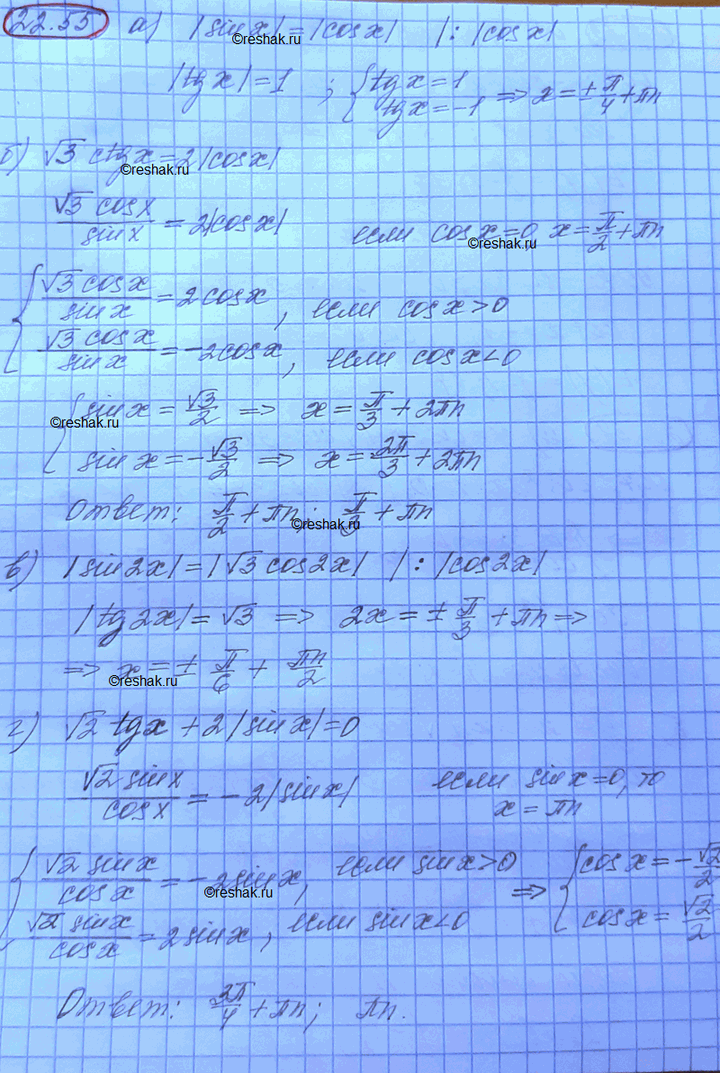 22.55 а) |sin x| = |cos x| | : |cos x|
©reshak.ru
|tg x| = 1 ; { tg x = 1
tg x = -1 ⇒ x = ± π/4 + πn
б) √3 ctg x = 2|cos x|
©reshak.ru
√3 cos x / sin x = 2|cos x| если cos x = 0 x = π/2 + πn
©reshak.ru
{ √3 cos x / sin x = 2 cos x, если cos x > 0
√3 cos x / sin x = -2 cos x, если cos x < 0
{ sin x = √3/2 ⇒ x = π/3 + 2πn
©reshak.ru
sin x = -√3/2 ⇒ x = -2π/3 + 2πn
Ответ: π/2 + πn; π/3 + πn
©reshak.ru
в) |sin 2x| = |√3 cos 2x| | : |cos 2x|
|tg 2x| = √3 ⇒ 2x = ± π/3 + πn ⇒
⇒ x = ± π/6 + πn/2
©reshak.ru
г) √2 tg x + 2|sin x| = 0
√2 sin x / cos x = -2|sin x| если sin x = 0, то
x = πn
{ √2 sin x / cos x = -2 sin x, если sin x > 0 ⇒ { cos x = -√2/2
©reshak.ru
√2 sin x / cos x = 2 sin x, если sin x < 0 cos x = √2/2
Ответ: 3π/4 + πn; πn.